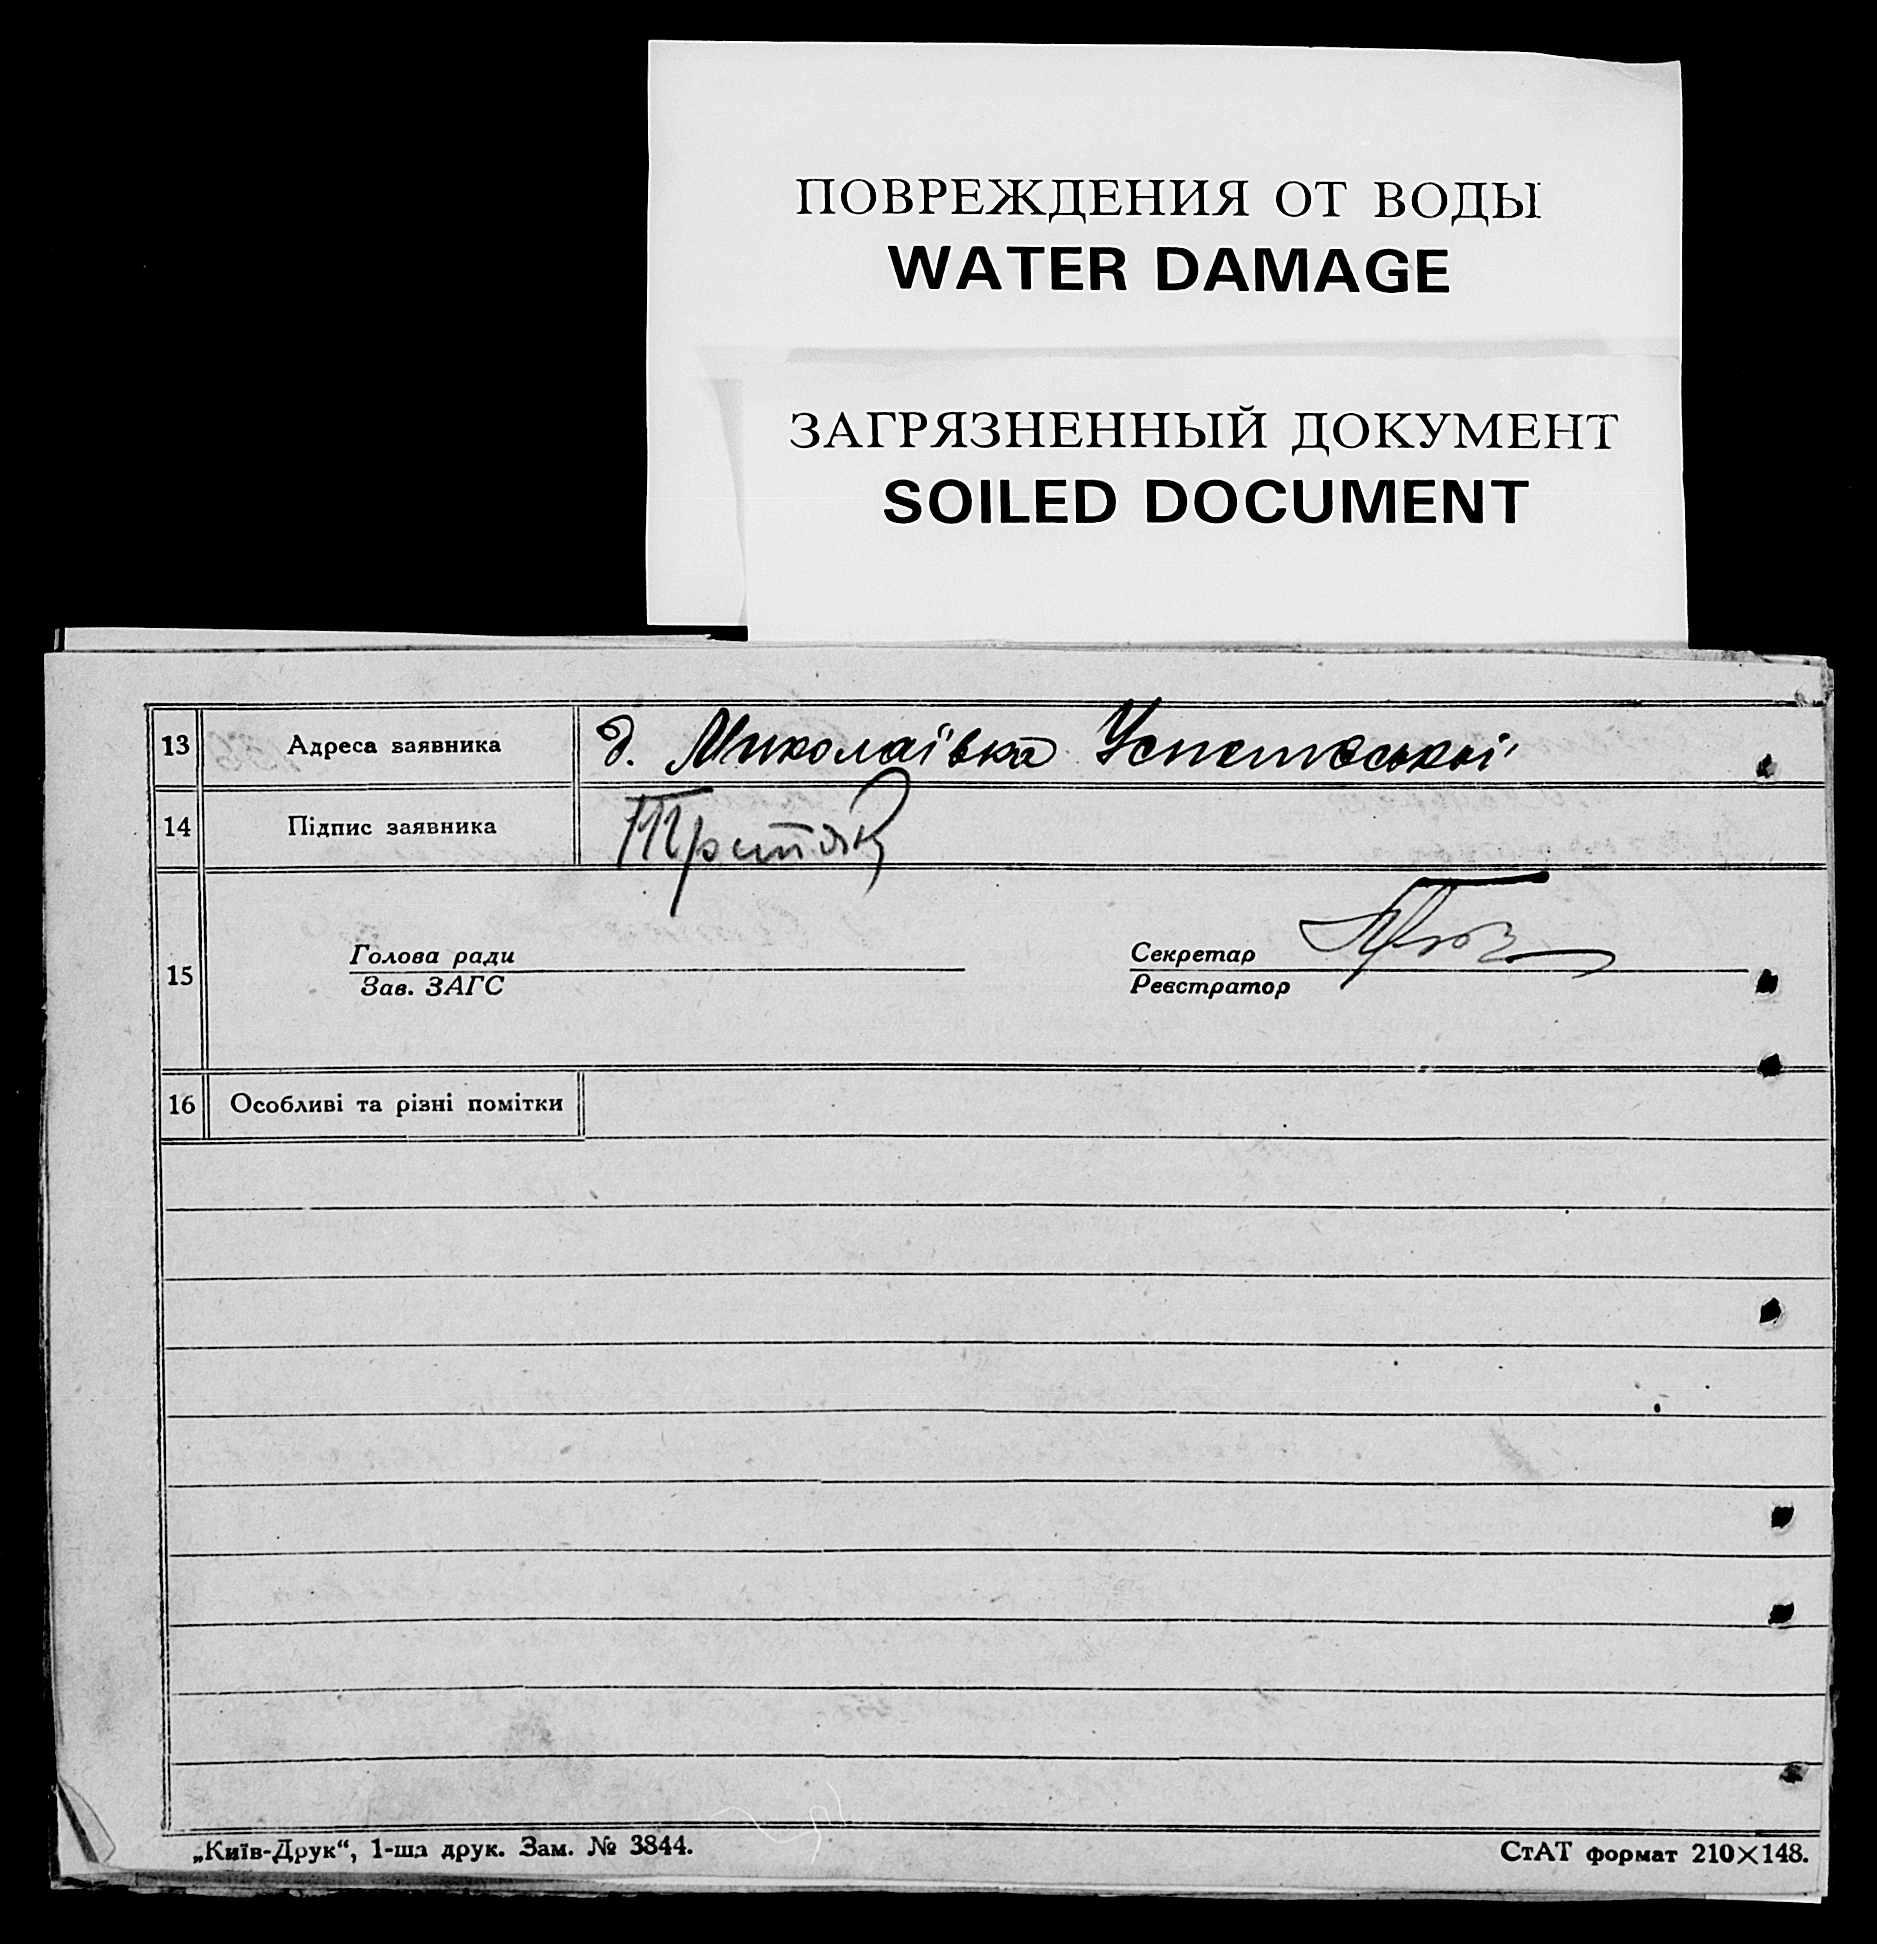 ПОВРЕЖДЕНИЯ ОТ ВОДЫ
WATER DAMAGE
ЗАГРЯЗНЕННЫЙ ДОКУМЕНТ
SOILED DOCUMENT
13 Адреса заявника д. Миколаївка
14 Підпис заявника
15 Голова ради Секретар
Зав. ЗАГС Реєстратор
16 Особливі та різні помітки
„Київ-Друк“, 1-ша друк. Зам. № 3844. СтАТ формат 210×148.